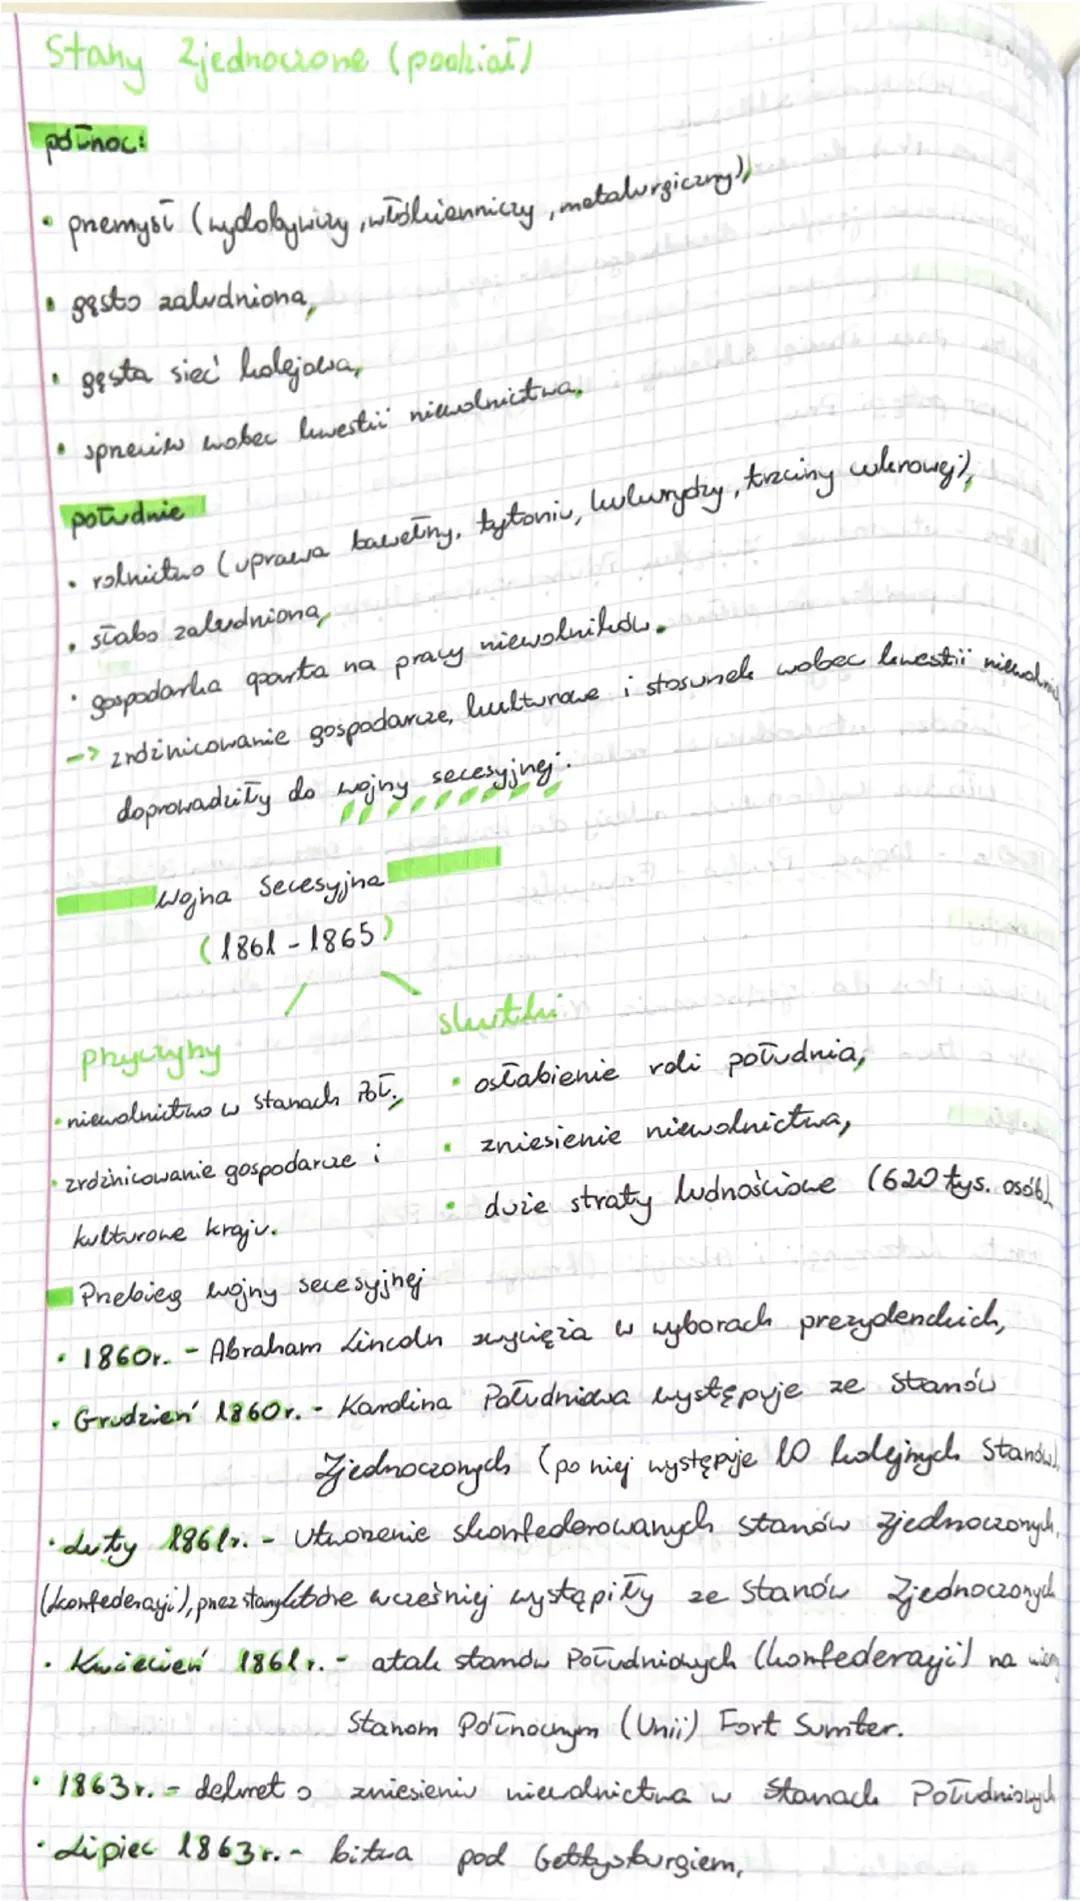 Stany Zjednoczone (podział)
północ:
• przemysł (wydobywczy, włókienniczy, metalurgiczny),
• gęsto zaludniona,
• gęsta sieć kolejowa,
• sprzeciw wobec kwestii niewolnictwa.
południe
• rolnictwo (uprawa bawełny, tytoniu, kukurydzy, trzciny cukrowej),
• słabo zaludniona,
• gospodarka oparta na pracy niewolników.
-> zróżnicowanie gospodarcze, kulturowe i stosunek wobec kwestii
doprowadziły do wojny secesyjnej.
Wojna Secesyjna
(1861-1865)
przyczyny
• niewolnictwo w stanach Poł.,
• zróżnicowanie gospodarcze i
kulturowe kraju.
skutki
• osłabienie roli południa,
• zniesienie niewolnictwa,
• duże straty ludnościowe (620 tys. osób).
Przebieg wojny secesyjnej
• 1860r. - Abraham Lincoln zwycięża w wyborach prezydenckich,
• Grudzień 1860r. - Karolina Południowa występuje ze Stanów
Zjednoczonych (po niej występuje 10 kolejnych Stanów).
• Luty 1861r. - Utworzenie skonfederowanych stanów zjednoczonych,
(konfederacji), przez stany które wcześniej wystąpiły ze Stanów Zjednoczonych
• Kwiecień 1861r. - atak stanów Południowych (konfederacji) na
Stanom Północnym (Unii) Fort Sumter.
• 1863r. - dekret o zniesieniu niewolnictwa w Stanach Południowych
• Lipiec 1863r. - bitwa pod Gettysburgiem,